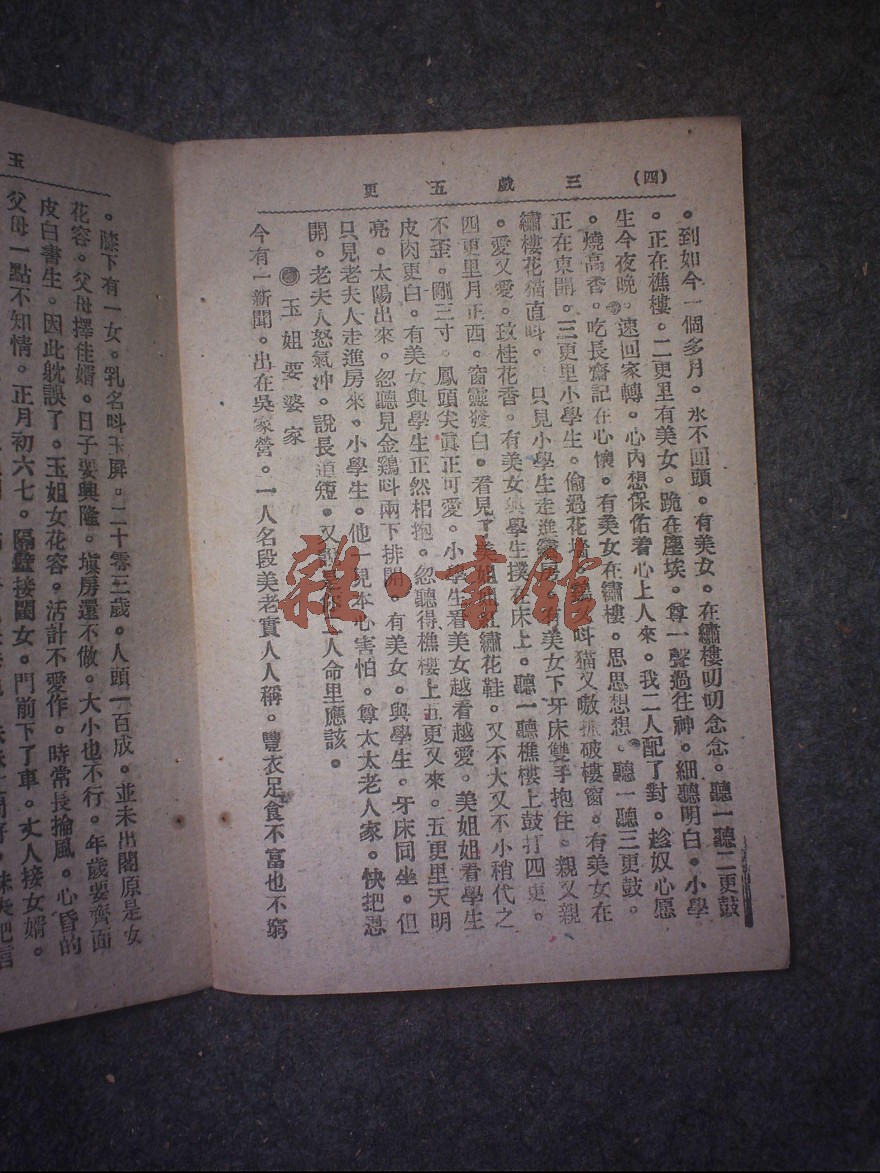 (四) 三戲五更
。到如今一個多月。永不回頭。有美女。在繡樓叨叨念念。聽一聽二更鼓
。正在樵樓。二更里有美女。跪在塵埃。尊一聲過往神。細聽明白。小學
生今夜晚。速回家轉。心內想保佑着心上人來。我二人配了對。趁奴心愿
。燒高香。吃長齋記在心懷。有美女在繡樓。思思想想。聽一聽三更鼓。
正在東開。三更里小學生。偷過花 叫猫又嗷 破樓窗。有美女在
繡樓花猫直叫。 只見小學生走進繡房。有美女下牙床雙手抱住。親又親
。愛又愛。玫桂花香。有美女與學生撲在床上。聽一聽樵樓上鼓打四更。
四更里月正西。窗靈發白。看見了美姐姐 繡花鞋。又不大又不小稍代之
不歪。剛三寸。鳳頭尖眞正可愛。小學生看美女越看越愛。美姐姐看學生
皮肉更白。有美女與學生正然相抱。忽聽得樵樓上五更又來。五更里天明
亮。太陽出來。忽聽見金鷄叫兩下排開。有美女。與學生。牙床同坐。但
只見老夫人走進房來。小學生。他一見本心害怕。尊太太老人家。快把恩
開。老夫人怒氣沖。說長道短。又 二人命里應該。
玉姐要婆家
今有一新聞。出在吳家營。一人名段美老實人人稱。豐衣足食不富也不窮
玉
。膝下有一女。乳名叫玉屏。二十零三歲。人頭一百成。並未出閣原是女
花容。父母擇佳婿。日子要興隆。塡房還不做。大小也不行。年歲要齊面
皮白書生。因此躭誤了。玉姐女花容。活計不愛作。時常長掄風。心昏的
父母一點不知情。正月初六七。隔壁接閨女。門前下了車。丈人接女婿。
雜·書館